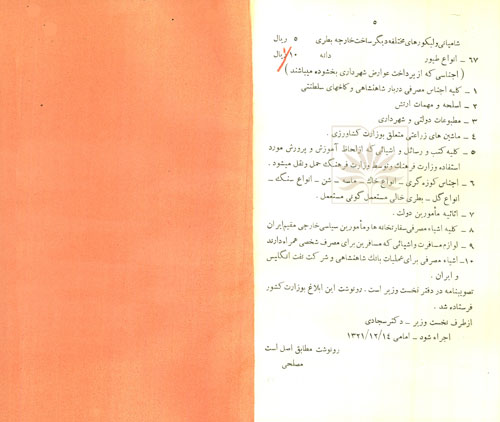 ۵
شامپانی و لیکورهای مختلفه دیگر ساخت خارجه بطری ۵ ریال
۶۷ ـ انواع طیور دانه ۱۰/ ریال
( اجناسی که از پرداخت عوارض شهرداری بخشوده میباشند )
۱ ـ کلیه اجناس مصرفی دربار شاهنشاهی و کاخهای سلطنتی
۲ ـ اسلحه و مهمات ارتش
۳ ـ مطبوعات دولتی و شهرداری
۴ ـ ماشین های زراعتی متعلق بوزارت کشاورزی .
۵ ـ کلیه کتب و رسائل و اشیائی که ازلحاظ آموزش و پرورش مورد
استفاده وزارت فرهنك وتوسط وزارت فرهنك حمل ونقل میشود .
۶ ـ اجناس کوزه گری ـ انواع خاك ـ ماسه ـ شن ـ انواع سنك ـ
انواع گل ـ بطری خالی مستعمل گونی مستعمل .
۷ ـ اثاثیه مأمورین دولت .
۸ ـ کلیه اشیاء مصرفی سفارتخانه ها ومأمورین سیاسی خارجی مقیم ایران
۹ ـ لوازم مسافرت واشیائی که مسافرین برای مصرف شخصی همراه دارند
۱۰ـ اشیاء مصرفی برای عملیات بانك شاهنشاهی و شرکت نفت انگلیس
و ایران .
تصویبنامه در دفتر نخست وزیر است . رونوشت این ابلاغ بوزارت کشور
فرستاده شد .
ازطرف نخست وزیر ـ دکتر سجادی
اجراء شود ـ امامی ۱۳۲۱/۱۲/۱۴
رونوشت مطابق اصل است
مصلحی